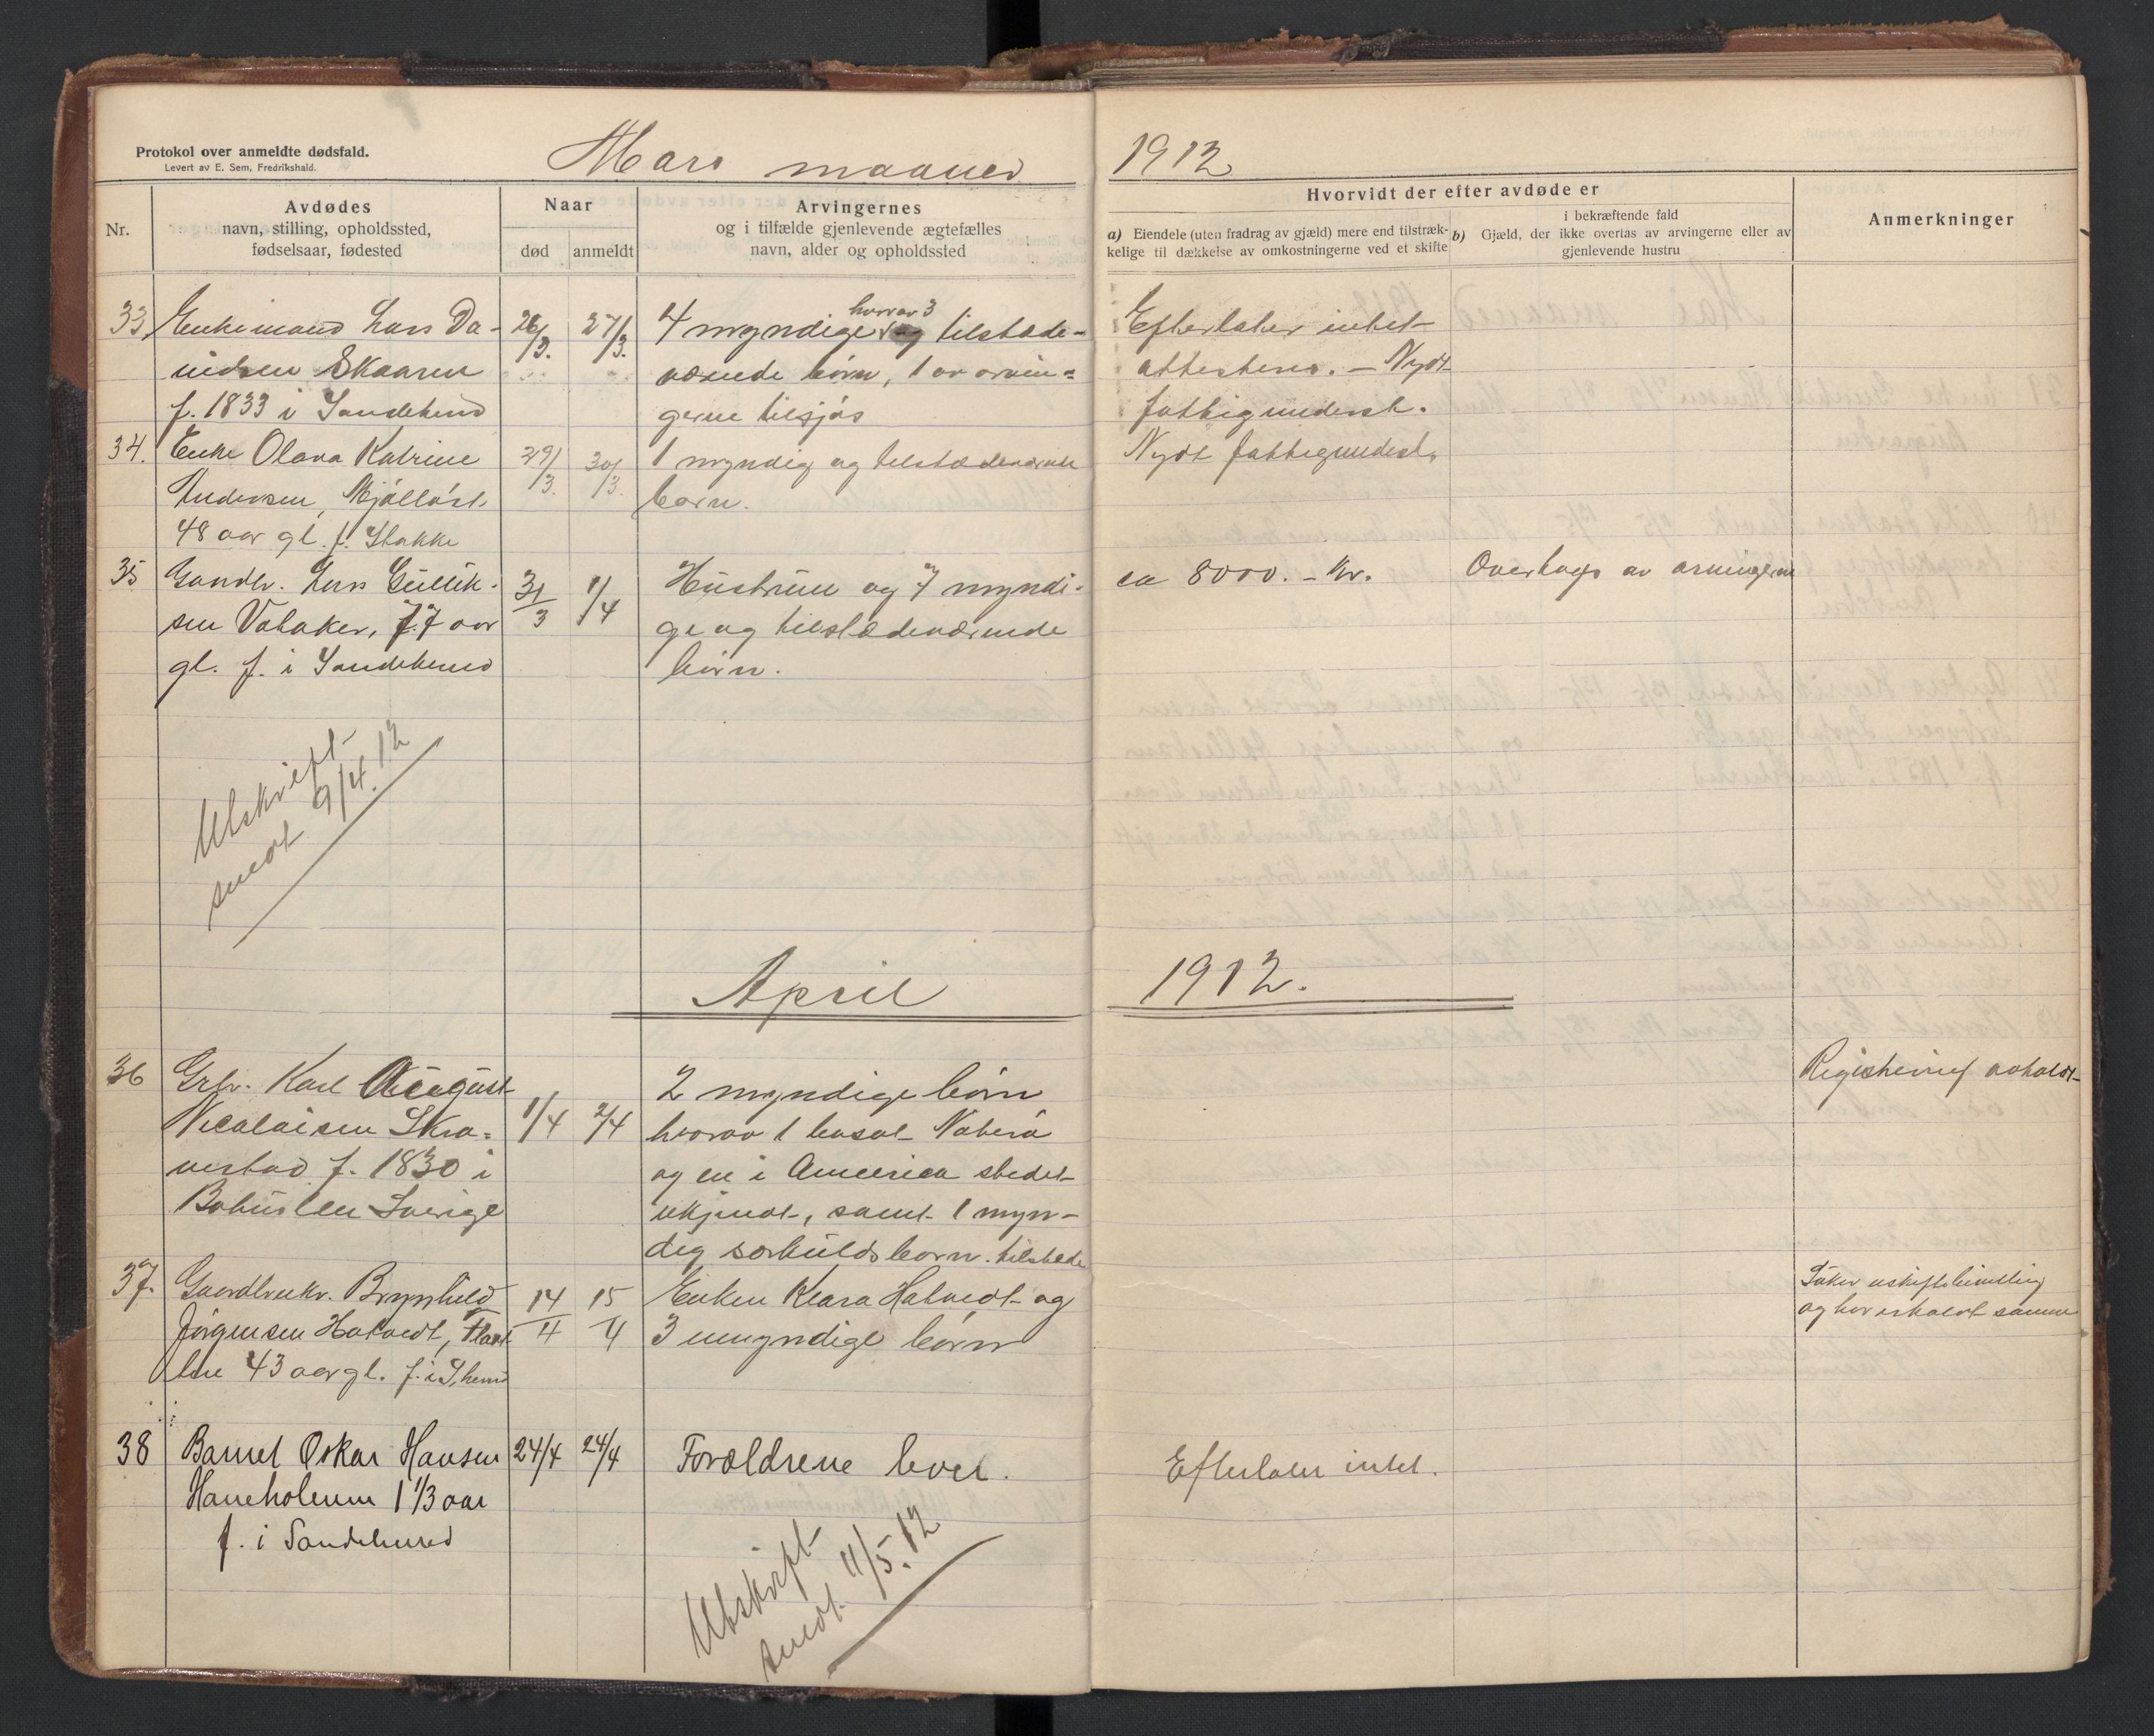 Protokol over anmeldte dødsfald.
Levert av E. Sem, Fredrikshald.
Mars maaned 1912
Nr.
Avdødes
navn, stilling, opholdssted,
fødselsaar, fødested
Naar
død
anmeldt
Arvingernes
og i tilfælde gjenlevende ægtefælles
navn, alder og opholdssted
Hvorvidt der efter avdøde er
a) Eiendele (uten fradrag av gjæld) mere end tilstræk-
kelige til dækkelse av omkostningerne ved et skifte
i bekræftende fald
b) Gjæld, der ikke overtas av arvingerne eller av
gjenlevende hustru
Anmerkninger
33 Enkemand Lars Da-
nielsen Skaaren
f. 1833 i Sandeherred
26/3. 27/3.
hvorav 3
4 myndige og tilstede-
værende børn, 1 av arvin=
gerne tilsjøs
Efterlater intet
attesteres. – Nydt
fattigunderst.
34. Enke Olava Katrine
Andersen, Mjølløst.
48 aar gl. f. Stokke
29/3. 30/3.
1 myndig og tilstedeværende
barn.
Nydt fattigunderst.
35 Gaardbr. Lars Gullik-
sen Vataker, 77 aar
gl. f. i Sandeherred
31/3 1/4
Hustruen og 7 myndi-
ge og tilstedeværende
børn.
ca 8000.- Kr.
Overtages av arvingerne
Utskrift
sendt 9/4.12
April 1912.
36 Grbr. Karl August
Nicolaisen Skra=
nestad f. 1830 i
Bohuslen Sverige
1/4 2/4
2 myndige børn
hvorav 1 bosat Nøterø
og en i America stedet
ukjendt, samt 1 myn-
dig særkuldsbarn. tilstede
Registrering avholdt
37. Gaardbruker Brynhild
Jørgensen Hotvedt,
43 aar gl. f. i S.herred
14/4 15/4
Enken Klara Hotvedt og
3 umyndige børn
Søker uskiftebevilling
og har erholdt samme
38 Barnet Oskar Hansen
Haneholmen 1 1/3 aar
f. i Sandeherred
24/4 24/4
Forældrene lever.
Efterlater intet.
Utskrift
sendt 11/5.12